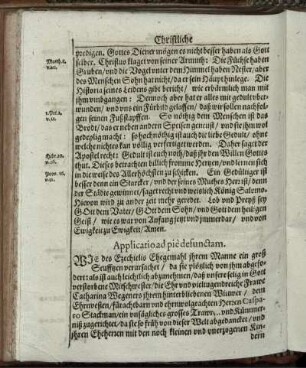 Christliche
predigen. Gottes Diener mögen es nicht besser haben als Gott
selber. Christus klaget von seiner Armuth: Die Füchse haben
Gruben / und die Vögel unter dem Himmel haben Nester, aber
des Menschen Sohn hat nicht / da er sein Häupt hinlege. Die
Historia seines Leidens gibt bericht / wie erbärmlich man mit
ihm umbgangen: Dennoch aber hat er alles mit gedult überwunden
/ und uns ein Fürbild gelassen / daß wir sollen nachfolgen
seinen Fußstapffen. So nöthig dem Menschen ist das
Brodt / das er neben andern Speisen geniest / und
ist auch die liebe Gedult / ohne
welche nichts
Apostel recht: Gedult ist euch noth / daß ihr den Willen Gottes
thut. Dieses betrachten billich fromme Hertzen / und lernen sich
in die weise des Allerhöchsten zu schicken. Ein Gedültiger ist
besser denn ein Starcker / und der seines Muthes Herr ist / denn
der Städte gewinnet /
Hievon wird zu ander zeit mehr geredet. Lob und Preyß sey
GOtt dem Vater / GOtt dem Sohn / und GOtt dem heiligen
Geist / wie es war von Anfang jetzt und immerdar / und von
Ewigkeit zu Ewigkeit / Amen.
Applicatio ad piè defunctam.
WIe des Ezechielis Ehegemahl ihrem Manne ein groß
Seufftzen verursachet / da sie plötzlich von ihm abgefodert:
als ist auch leichtlich abzunehmen / daß unsere selig in Gott
verstorbene Mitschwester / die Ehr und vieltugendreiche Fraw
Catharina Wegeners ihrem hinterbliebenen Witwer / dem
Ehrnvesten / fürachtbarn und ehrnwolgeachten Herren Casparo
Stackman / ein unsägliches grosses Trawr- und Kümmerniß
zugerichtet / da sie so früh von dieser Welt abgedancket / und
ihren Eheherren mit den noch kleinen und unerzogenen Kindern